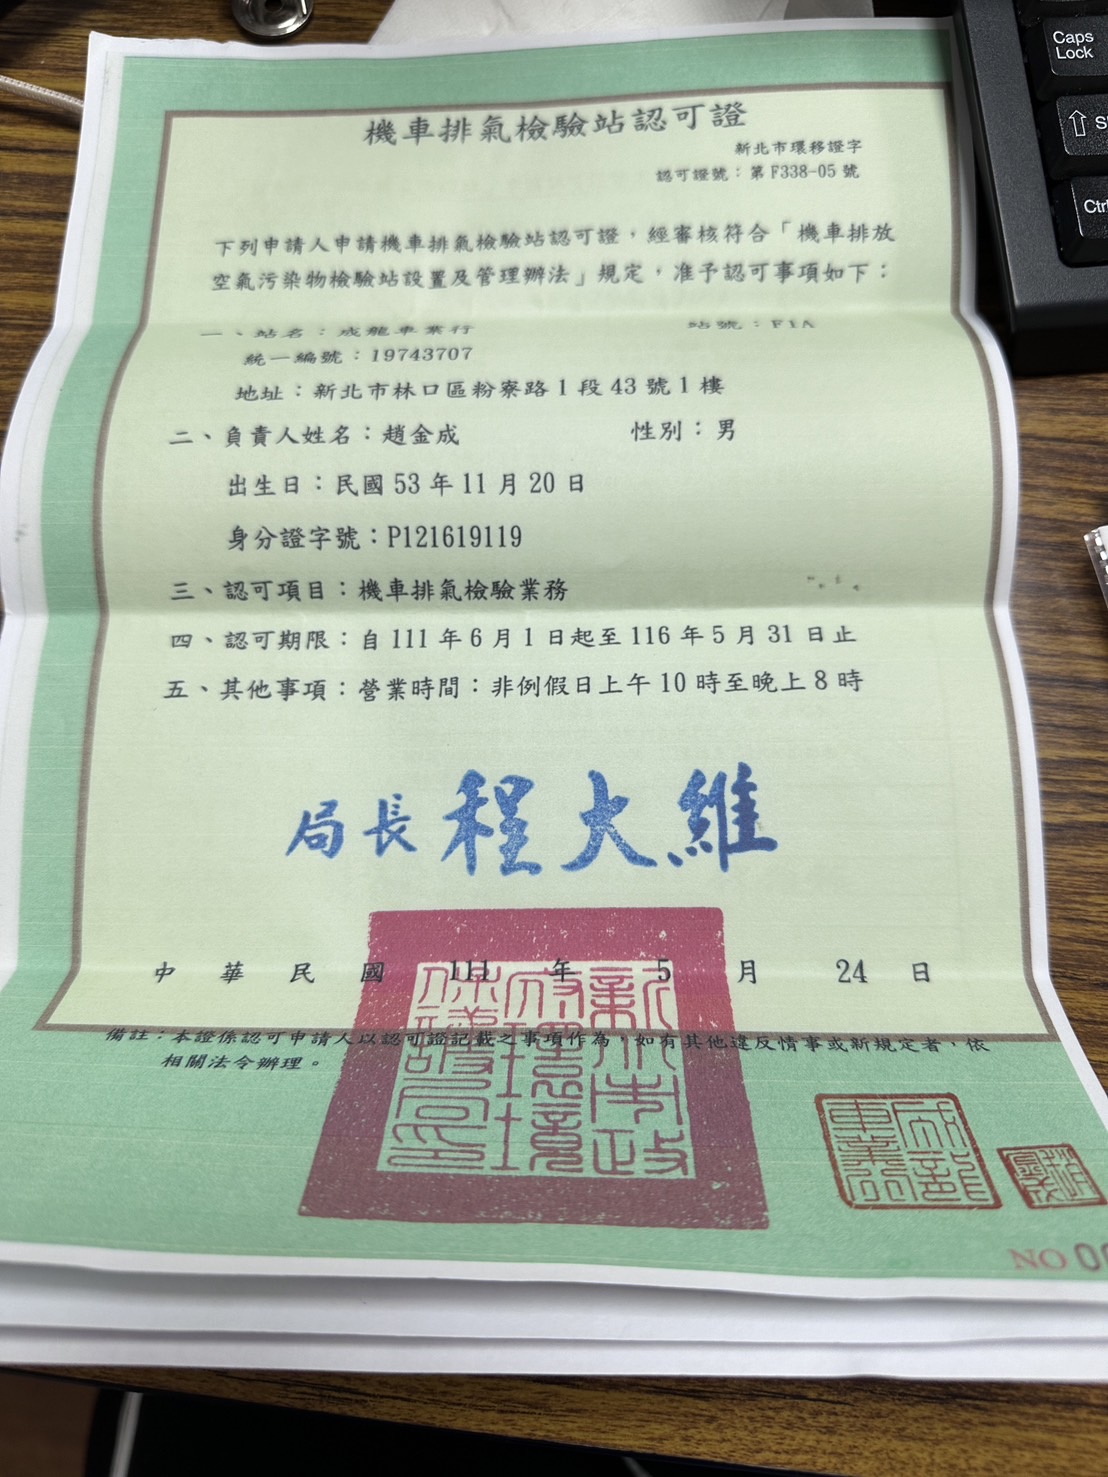 機車排氣檢驗站認可證
新北市環移證字
認可證號：第 F338-05 號
下列申請人申請機車排氣檢驗站認可證，經審核符合「機車排放
空氣污染物檢驗站設置及管理辦法」規定，准予認可事項如下：
一、站名：成龍車業行 站號：F1A
統一編號：19743707
地址：新北市林口區粉寮路 1 段 43 號 1 樓
二、負責人姓名：趙金成 性別：男
出生日：民國 53 年 11 月 20 日
身分證字號：P121619119
三、認可項目：機車排氣檢驗業務
四、認可期限：自 111 年 6 月 1 日起至 116 年 5 月 31 日止
五、其他事項：營業時間：非例假日上午 10 時至晚上 8 時
局長 程大維
中華民國 111 年 5 月 24 日
備註：本證係認可申請人以認可證記載之事項作為，如有其他違反情事或新規定者，依
相關法令辦理。
新北市政府環境保護局印
成龍車業行
NO
Caps Lock
Ctrl